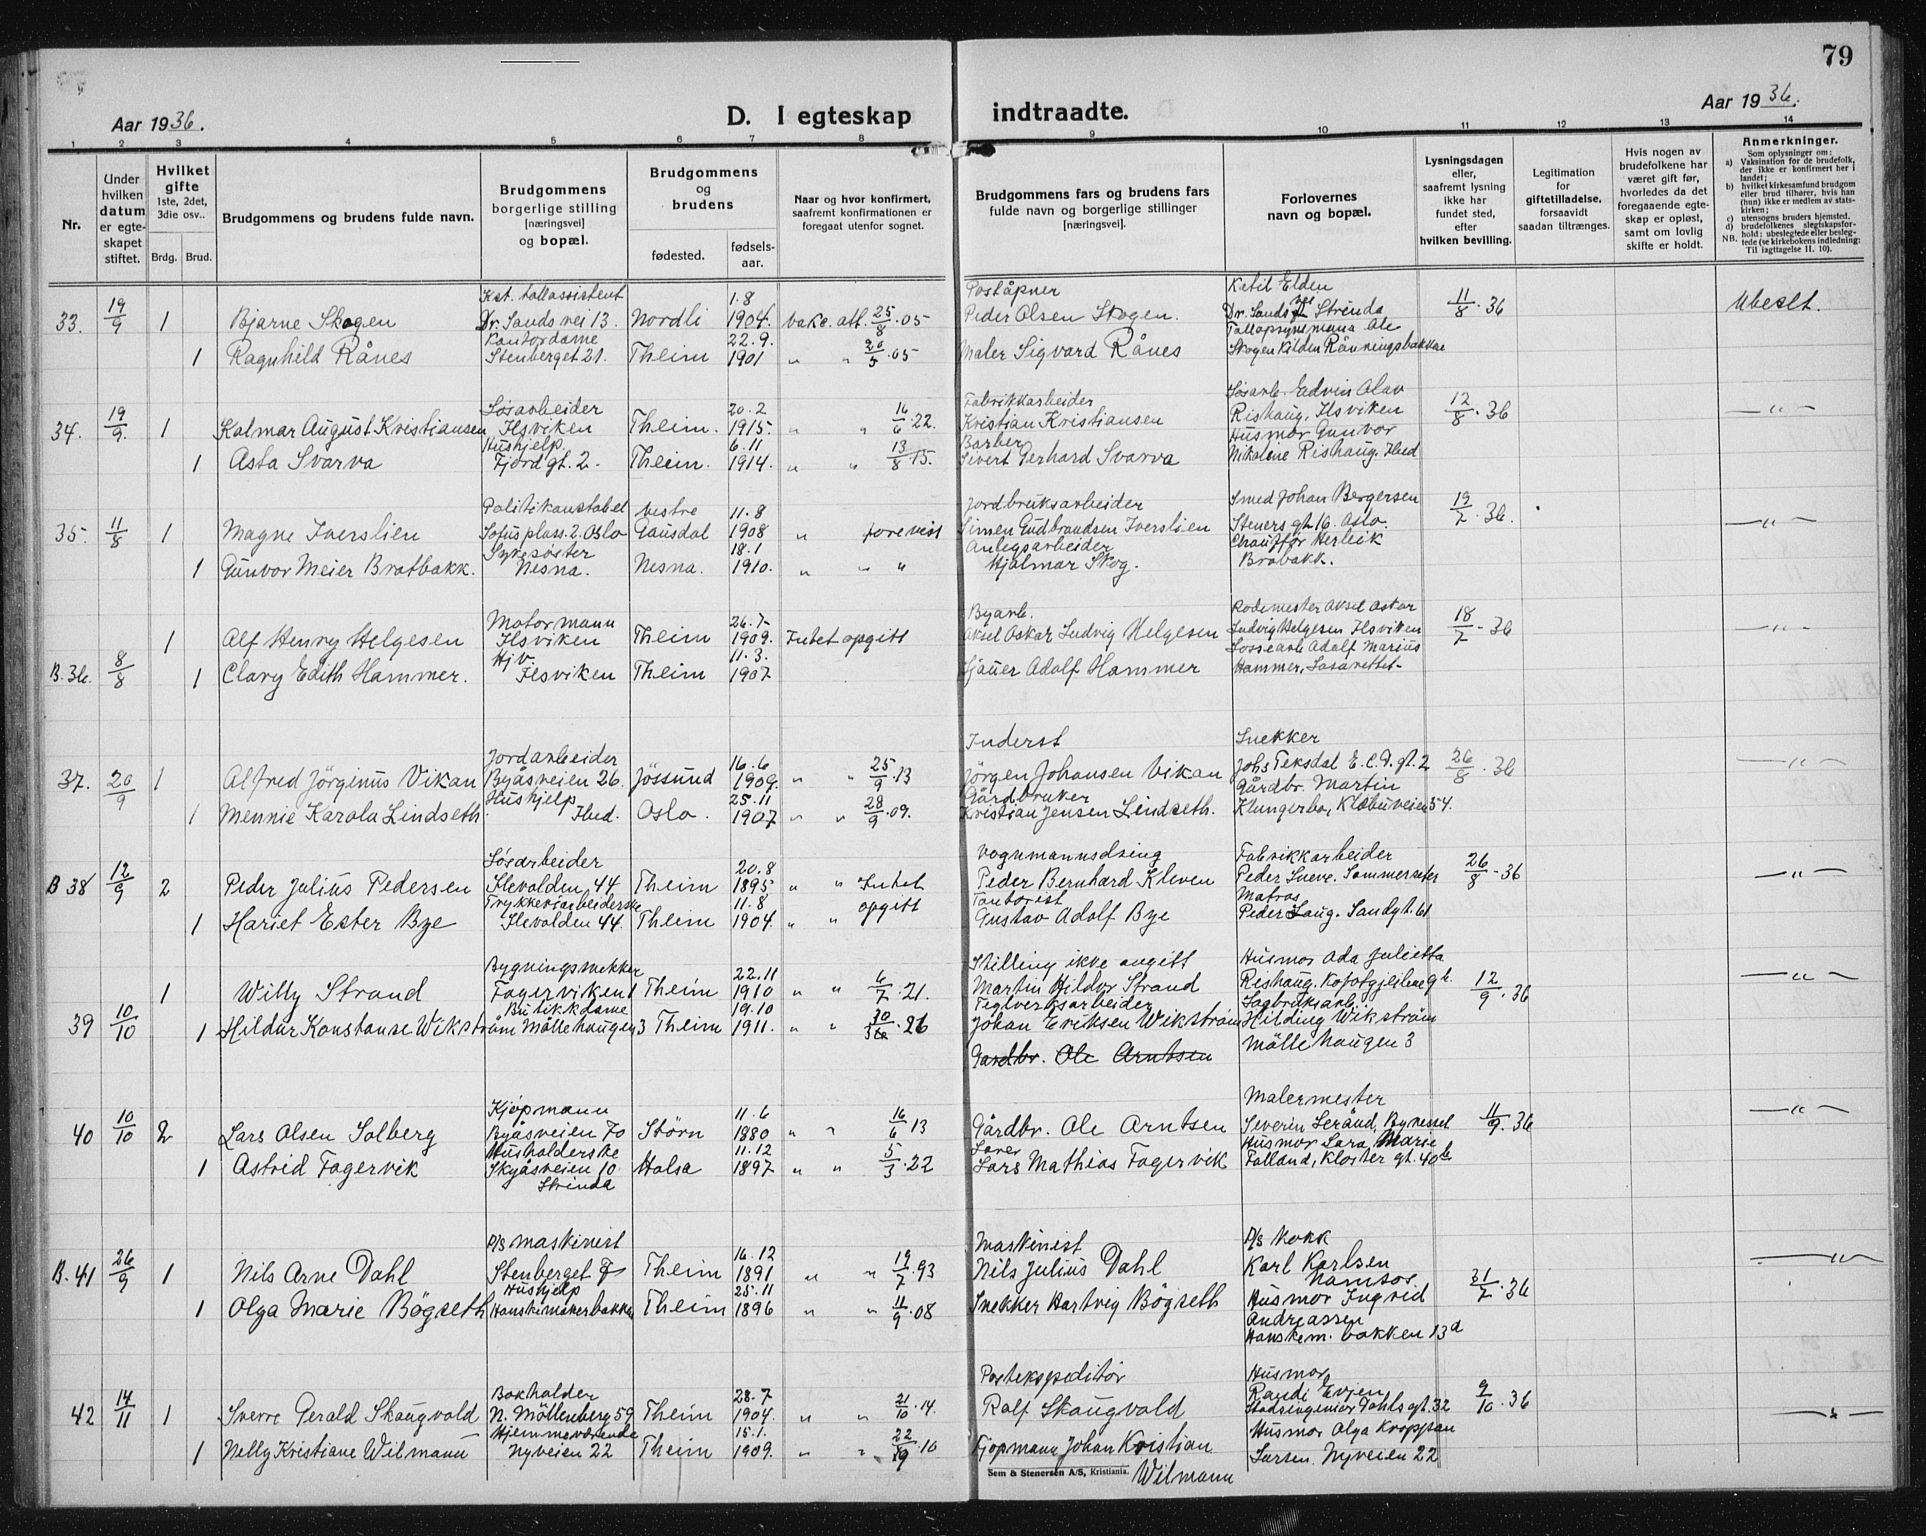 79
Aar 1936.
D. I egteskap indtraadte.
Aar 1936.
1 2 3 4 5 6 7 8 9 10 11 12 13 14
Nr.
Under hvilken datum er egteskapet stiftet.
Hvilket gifte 1ste, 2det, 3die osv..
Brdg. Brud.
Brudgommens og brudens fulde navn.
Brudgommens borgerlige stilling [næringsvei] og bopæl.
Brudgommens og brudens
fødested.
fødsels-aar.
Naar og hvor konfirmert, saafremt konfirmationen er foregaat utenfor sognet.
Brudgommens fars og brudens fars fulde navn og borgerlige stillinger [næringsvei].
Forlovernes navn og bopæl.
Lysningsdagen eller, saafremt lysning ikke har fundet sted, efter hvilken bevilling.
Legitimation for giftetilladelse, forsaavidt saadan tiltrænges.
Hvis nogen av brudefolkene har været gift før, hvorledes da det foregaaende egteskap er opløst, samt om lovlig skifte er holdt.
Anmerkninger.
Som oplysninger om:
a) Vaksination for de brudefolk, der ikke er konfirmert her i landet;
b) hvilket kirkesamfund brudgom eller brud tilhører, hvis han (hun) ikke er medlem av statskirken;
c) utensogns bruders hjemsted.
d) brudefolkenes slegtskapsforhold: ubeslegtede eller beslegtede (se kirkebokens indledning: Til Iagttagelse II. 10).
NB.
Kst. tollassistent 1.8 Poståpner Ketil Elden
33. 19/9 1 Bjarne Skogen Dr. Sands vei 13. Nordli 1904. vakc. att. 25/8.05 Peder Olsen Skogen. Dr. Sands vei Strinda 11/8.36 Ubeslt.
Kontordame 22.9. Ole
1 Ragnhild Rånes Stenberget 21. Theim 1901 " " 20/5.05 Maler Sigvard Rånes Skogen Kilden Rönningsbakken
Løsarbeider 20.2 Fabrikkarbeider Løsarb. Edvin Olav
34. 19/9. 1 Kalmar August Kristiansen Ilsviken Theim. 1915. " " 16/6.22. Kristian Kristiansen Rishaug, Ilsviken 12/8.36 — " —
Hushjelp 6.11 Barber Husmor Gunvor
1 Asta Svarva Fjordgt. 2. Theim. 1914. " " 13/8.15. Sivert Gerhard Svarva Nikoline Rishaug. Ibid
Politikonstabel vestre 11.8 Jordbruksarbeider Smed Johan Bergersen
35. 11/8 1 Magne Iverslien Sofus plass. 2. Oslo Gausdal 1908 " forevist Simen Gudbrandsen Iverslien Steners gt. 16. Oslo. 19/7.36. — " —
Sykesøster 18.1 Anlegsarbeider Chauffør Herleik
1 Gunvor Meier Bratbakk. Nesna. Nesna. 1910. " " " Hjalmar Skog. Brabakk.
Motormann 26.7 Byarb. Rodemester Aksel Oskar
1 Alf Henry Helgesen Ilsviken Theim 1909. Intet opgitt Aksel Oskar Ludvig Helgesen Ludvig Helgesen Ilsviken 18/7-36 — " —
Hjv. 11.3. Lossearb Adolf Marius
B.36. 8/8 1 Clary Edith Hammer. Ilsviken Theim 1907 Sjauer Adolf Hammer Hammer, Lasarettet-
Jordarbeider 16.6 Inderst Snekker
37. 20/9 1 Alfred Jörginus Vikan Byåsveien 26. Jössund 1909. " " 25/9.13 Jörgen Johansen Vikan Johs Teksdal E.C.D. gt. 2 26/8.36 — " —
Hushjelp 25.11 Gårdbruker Gårdbr. Martin
1 Mennie Karola Lindseth. Ibid. Oslo. 1907 " " 28/9.09. Kristian Jensen Lindseth. Klungerbo, Klæbuveien 54.
Løsarbeider 20.8 Vognmannsdreng Fabrikkarbeider
B 38 12/9 2 Peder Julius Pedersen Ilevolden 44 Theim 1895 " " Intet Peder Bernhard Kleven Peder Sneve. Sommerseter 26/8-36 — " —
Trykkeriarbeiderske 11.8 opgitt Kontorist Matros
1 Hariet Ester Bye Ilevolden 44. Theim 1904. " " Gustav Adolf Bye Peder Haug. Sandgt. 61
Bygningssnekker 22.11 Stilling ikke angitt Husmor Ada Julietta
1 Willy Strand Fagerviken 1 Theim 1910 " " 6/7.21. Martin Hildor Strand Rishaug. 12/9.36 — " —
Butikkdame 19.10 Teglverksarbeider Sagbruksarb.
39 10/10 1 Hildur Konstanse Wikström Möllehaugen 3 Theim 1911. " " 30/ .26 Johan Eriksen Wikström Hilding Wikström
Gardbr. Ole Arntsen Möllehaugen 3
Kjøpmann 11.6 Malermester
40 10/10 2 Lars Olsen Solberg Byåsveien 70 Störn 1880 " " 16/6 13 Gårdbr. Ole Arntsen Severin Lerånd, Byneset 11/9.36 — " —
Husholderske 11.12 Lærer Husmor Lara Marie
1 Astrid Fagervik Skyåsveien 10 Halsa 1897 " " 5/3.22 Lars Mathias Fagervik Falland, Kloster gt. 40b
Strinda
D/S maskinist 16.12 Maskinist D/S Kokk
B.41 26/9 1 Nils Arne Dahl Stenberget 7 Theim 1891 " " 19/7.93 Nils Julius Dahl Karl Karlsen Namsos 31/7.36 — " —
Hushjelp 25.11 Husmor Ingrid
1 Olga Marie Bögseth Hanskemakerbakken Theim 1896 " " 11/9.08 Snekker Hartvig Bögseth Andreassen
Hanskem. bakken 13a
Bokholder 28.7 Postekspeditør Husmor
42 14/11 1 Sverre Gerald Skaugvold N. Möllenberg 59 Theim 1904. " " 21/10.14. Rolf Skaugvold Randi Evjen Stadsingeniør Dahls gt. 32 9/10.36 — " —
Hjemmeværende 15.1. Husmor Olga Kroppan
1 Nelly Kristiane Wilmann Nyveien 22 Theim 1909. " " 22/ .10 Kjøpmann Johan Kristian Wilmann Larsen, Nyveien 22
Sem & Stenersen A/S, Kristiania.